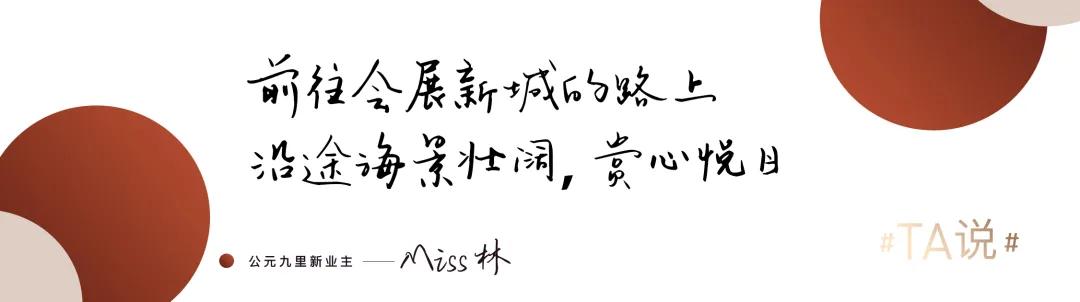 前往会展新城的路上
沿途海景壮阔,赏心悦目
公元九里新业主 —— Miss 林
#TA说#